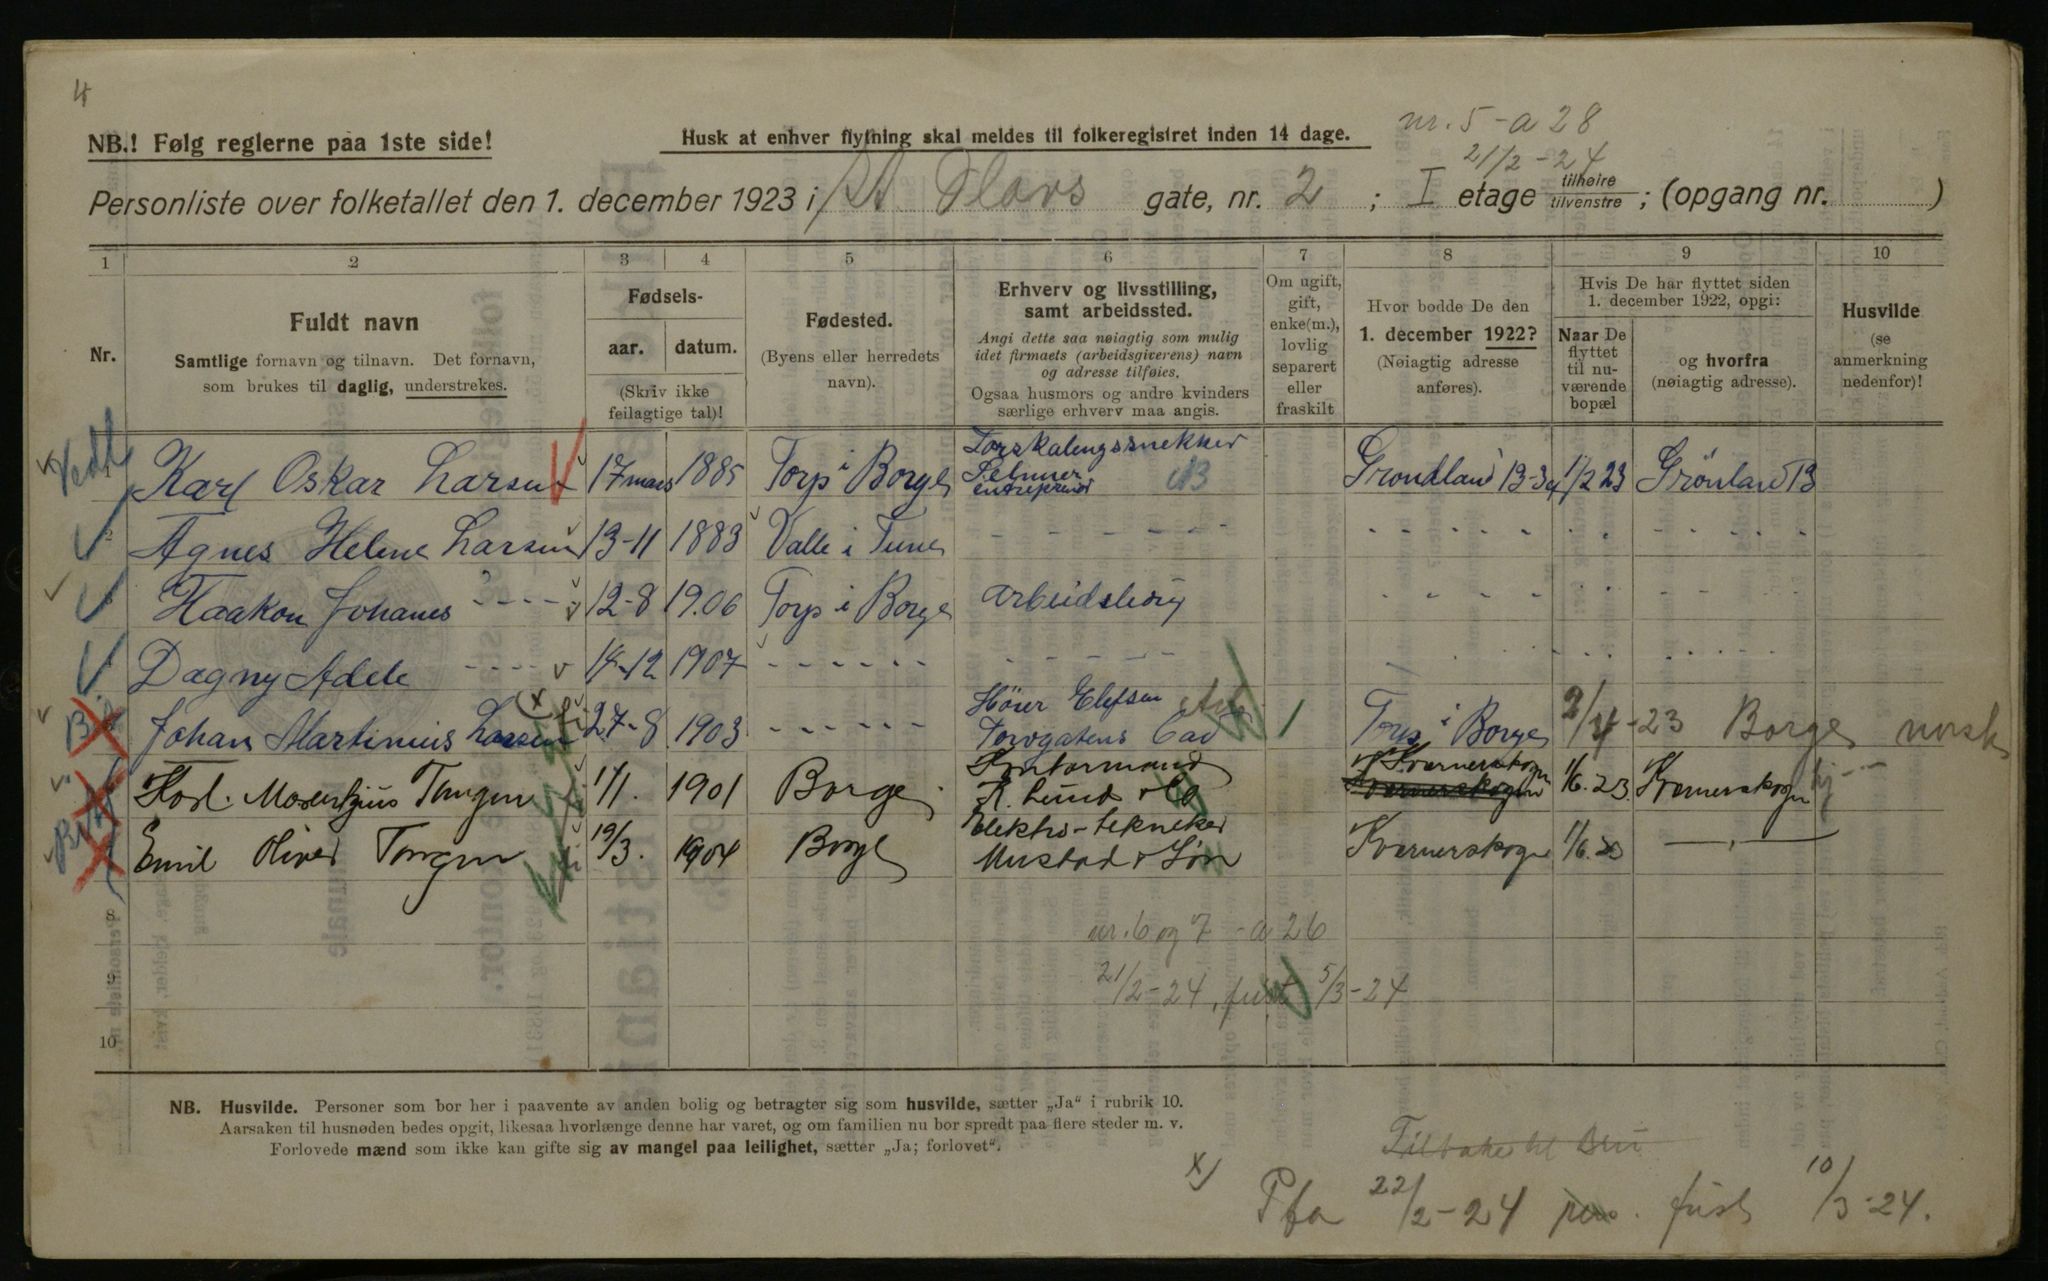 4
nr. 5 - a 28
NB.! Følg reglerne paa 1ste side!
Husk at enhver flytning skal meldes til folkeregistret inden 14 dage.
21/2 - 24
Personliste over folketallet den 1. december 1923 i St Olavs gate, nr. 2 ; I etage tilhøire tilvenstre ; (opgang nr. )
1 2 3 4 5 6 7 8 9 10
Nr.
Fuldt navn
Samtlige fornavn og tilnavn. Det fornavn,
som brukes til daglig, understrekes.
Fødsels-
aar. datum.
(Skriv ikke
feilagtige tal)!
Fødested.
(Byens eller herredets
navn).
Erhverv og livsstilling,
samt arbeidssted.
Angi dette saa nøiagtig som mulig
idet firmaets (arbeidsgiverens) navn
og adresse tilføies.
Ogsaa husmors og andre kvinders
særlige erhverv maa angis.
Om ugift,
gift,
enke(m.),
lovlig
separert
eller
fraskilt
Hvor bodde De den
1. december 1922?
(Nøiagtig adresse
anføres).
Hvis De har flyttet siden
1. december 1922, opgi:
Naar De
flyttet
til nu-
værende
bopæl
og hvorfra
(nøiagtig adresse).
Husvilde
(se
anmerkning
nedenfor)!
Karl Oskar Larsen 17 mars 1885 Torp i Borge Forskalingssnekker entreprenør 13-34 1/2 23 Grønland 13
2 Agnes Helene Larsen 13-11 1883 Valle i Tune - - - - - -
3 Haakon Johanes - - - - 12-8 19.06 Torp i Borge Arbeidsledig
Dagny Adele - - - - 14-12 1907 - - - - - -
Johan Martinius Larsen x) 27-8 1903 - - - - - - Høier Elefsen Torvgatens Torp i Borge 2/4-23 Borge norsk
Tangen 1/1. 1901 Borge Kontormand K. Lund & Co Kværnerskogen 1/6. 23. Kværnerskogen
Emil Oliver Tangen 19/3. 1904 Borge Elektro-tekniker Mustad & Søn Kværnerskogen 1/6. 23 — " —
8
nr. 6 og 7 - a 26
9
21/2 - 24, fust 5/3 - 24
10
NB. Husvilde. Personer som bor her i paavente av anden bolig og betragter sig som husvilde, sætter „Ja" i rubrik 10.
Aarsaken til husnøden bedes opgit, likesaa hvorlænge denne har varet, og om familien nu bor spredt paa flere steder m. v.
Forlovede mænd som ikke kan gifte sig av mangel paa leilighet, sætter „Ja; forlovet".
x) Pfa 22/2 - 24 pers. fust 10/3 - 24.